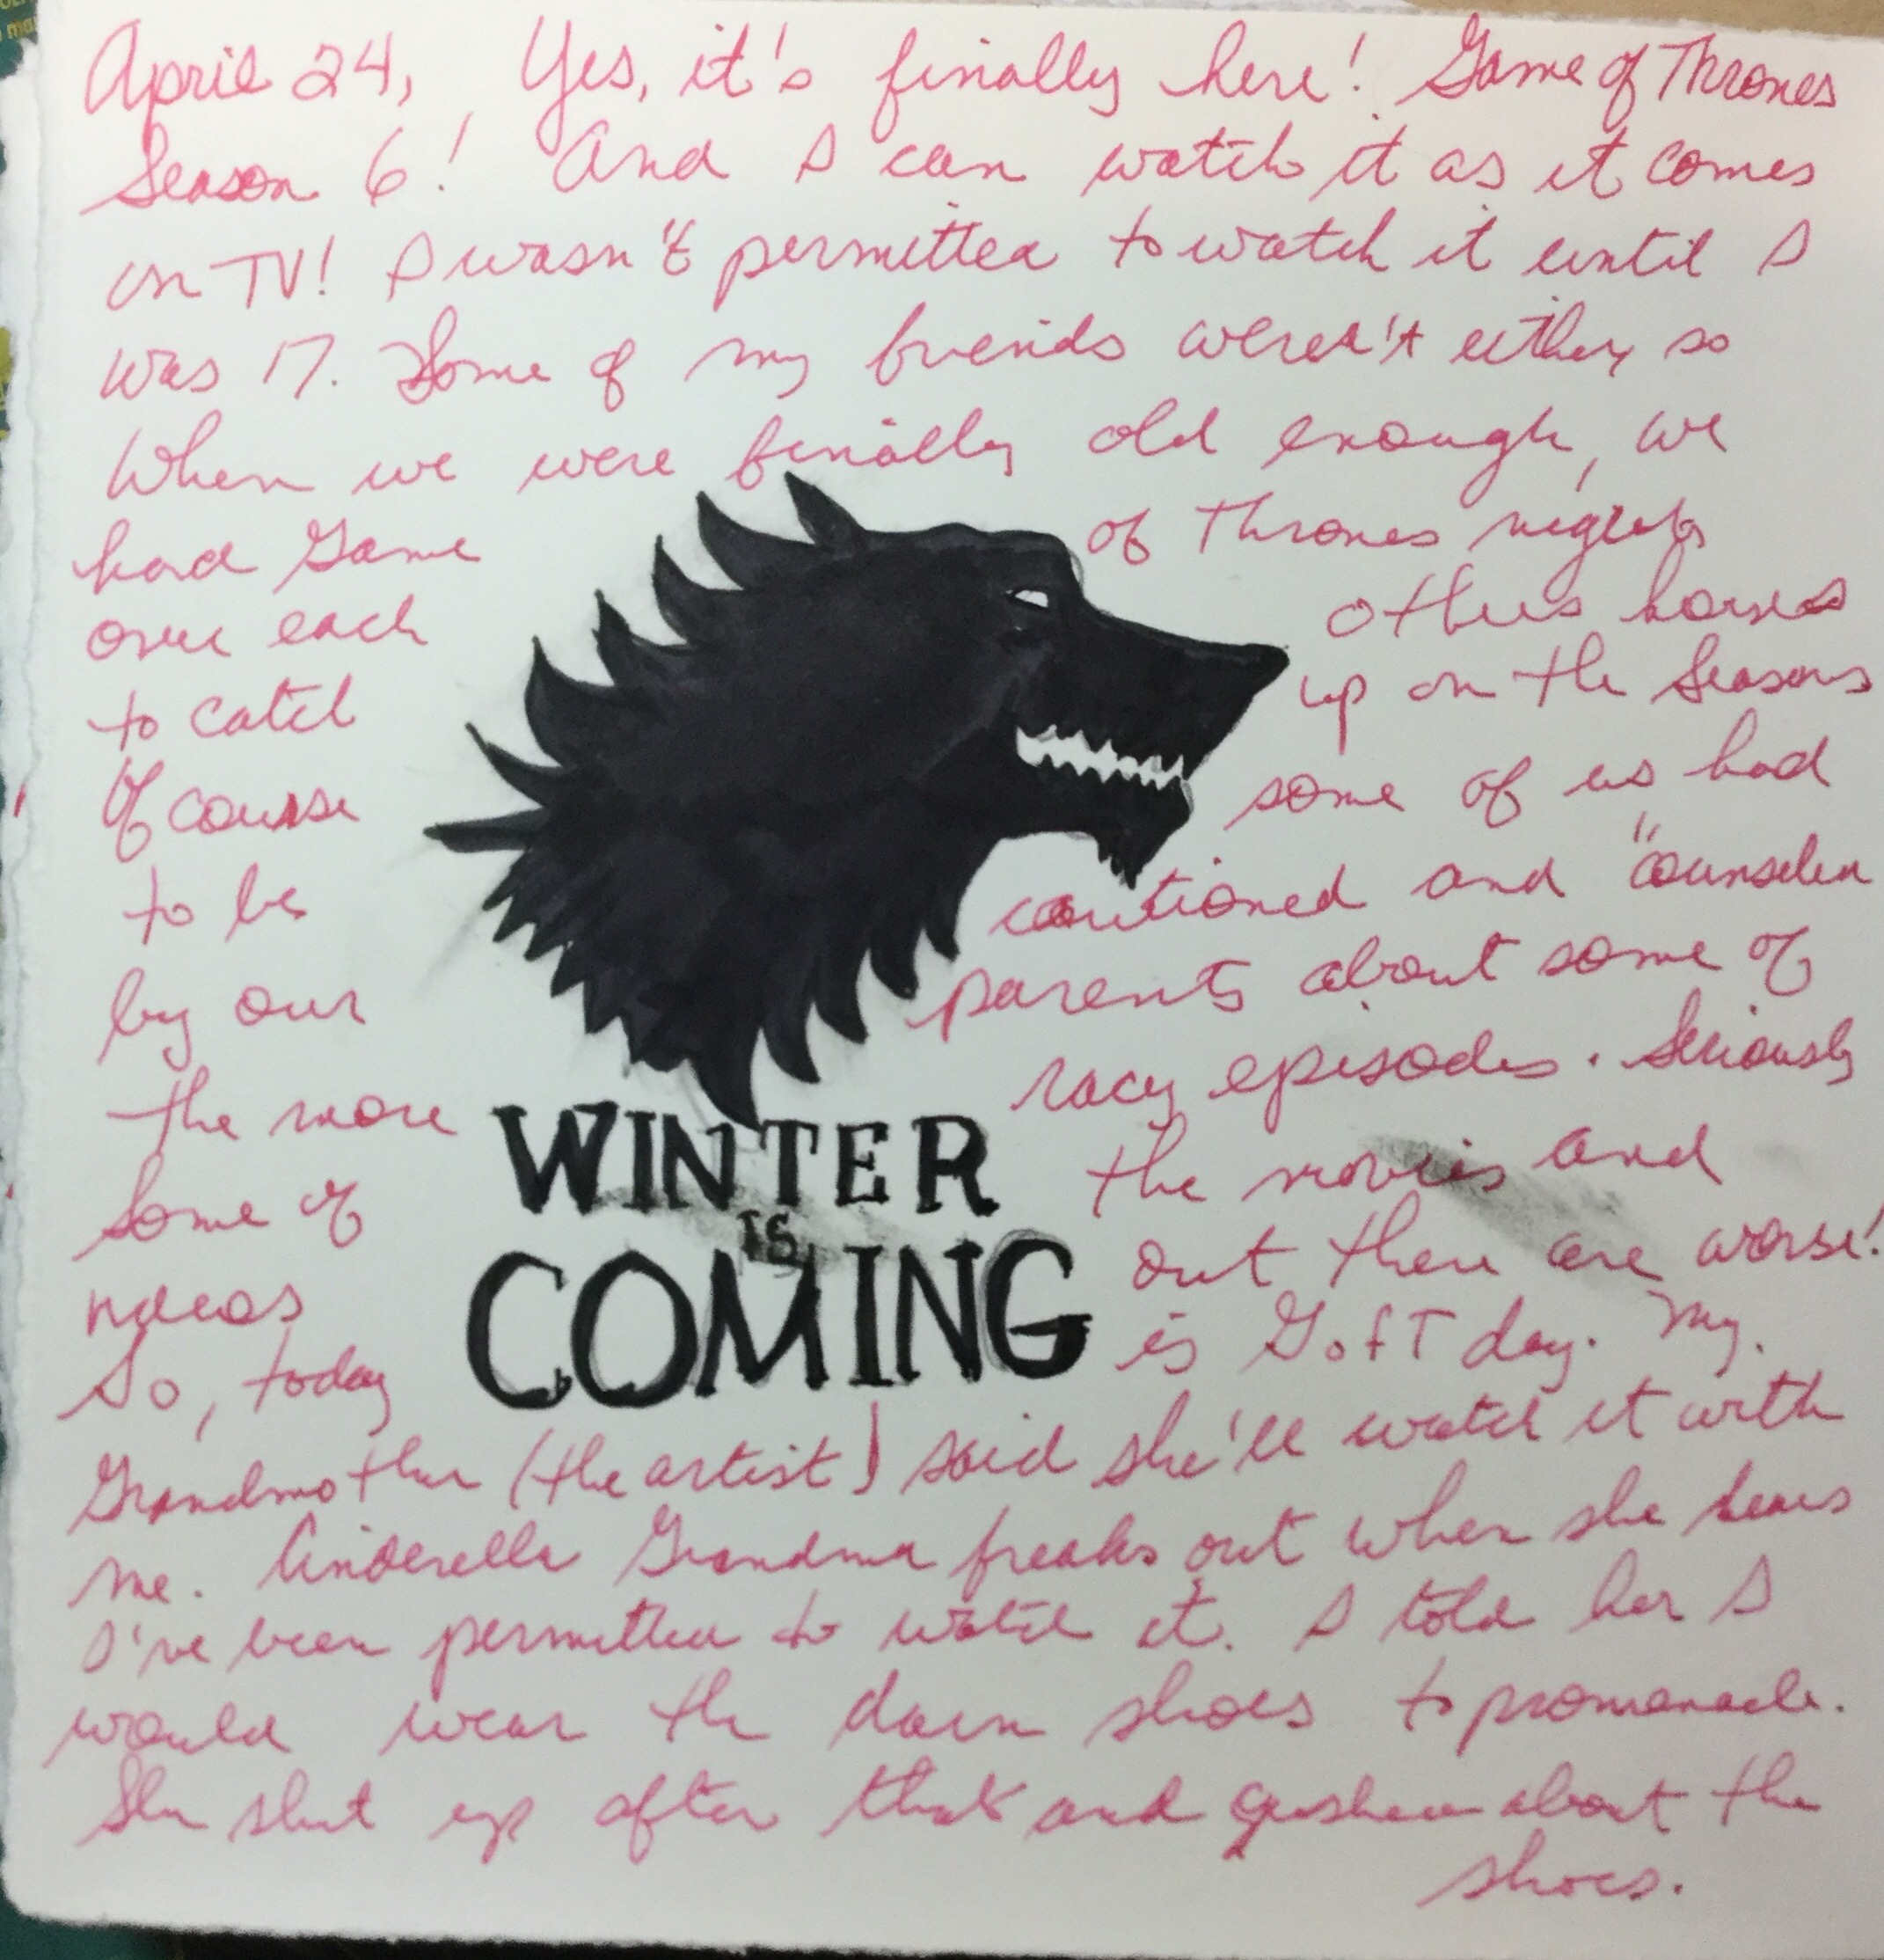 April 24, Yes, it's finally here! Game of Thrones
Season 6! And I can watch it as it comes
on TV! I wasn't permitted to watch it until I
was 17. Some of my friends weren't either so
When we were finally old enough, we
had Game of Thrones nights
over each others homes
to catch up on the Seasons
Of course some of us had
to be cautioned and "counseled
by our parents about some of
the more racy episodes. Seriously
Some of the movies and
videos out there are worse!
So, today is GofT day. My
Grandmother (the artist) said she'll watch it with
me. Cinderella Grandma freaks out when she hears
I've been permitted to watch it. I told her I
would wear the darn shoes to promenade.
She shut up after that and gushed about the
shoes.
WINTER
IS
COMING